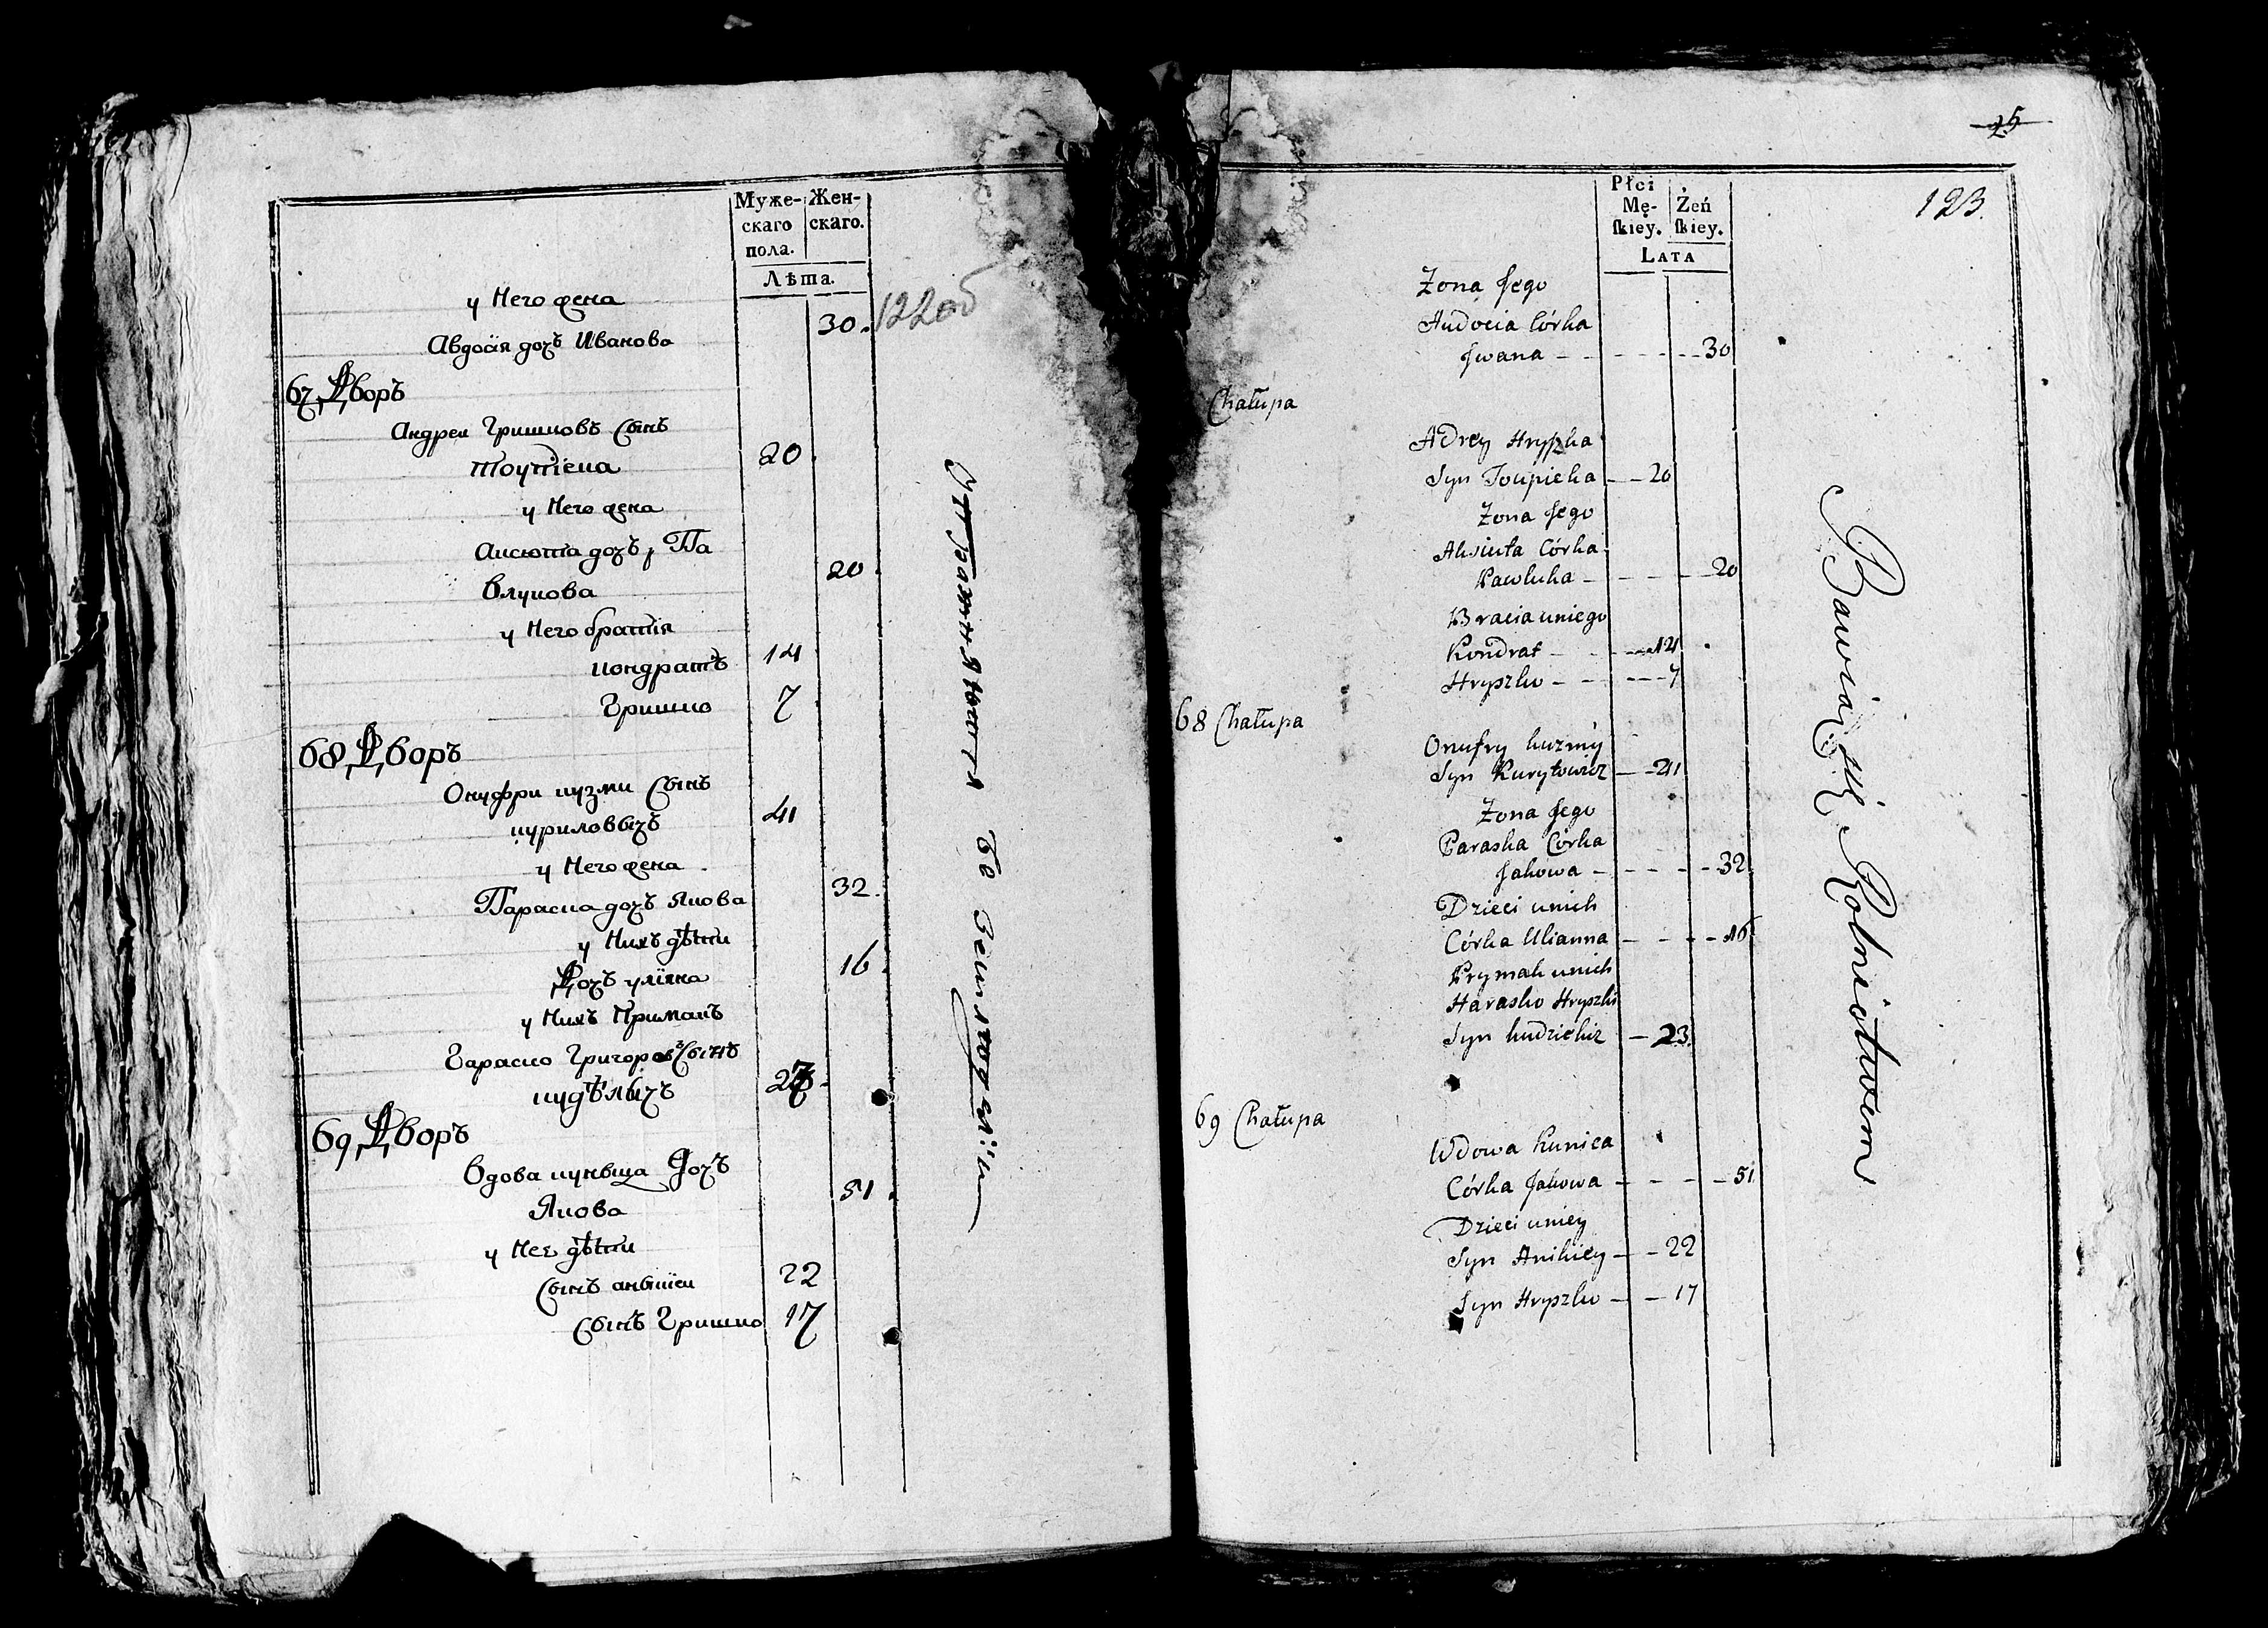 Муже-
скаго
пола.
Жен-
скаго.
Лѣта.
122об
у Него жена
Авдосія дочъ Иванова 30
67 Дворъ
Андреи Гришковъ Сынъ
Тоупіека 20
у Него жена
Аксюта дочъ Па
влукова 20
у Него братія
кондратъ 14
Гришко 7
68 Дворъ
Онуфри кузми Сынъ
куриловычъ 41
у Него жена
Параска дочъ Якова 32
у Нихъ дѣти
Дочъ уліяна 16
у Нихъ Примакъ
Гараско Григоровъ Сынъ
69 Дворъ
Вдова куныца Дочъ
Якова 51
у Неѣ дѣти
Сынъ аныкіеи 22
Сынъ Гришко 17
Упражняются въ Земледѣліи
25
123.
Płci
Mę-
ſkiey.
Żeń
ſkiey.
LATA
Zona Jego
Audocia Córka
Jwana - - - - 30
Chałupa
Adrey Hryszka
Syn Toupieka - - 20
Zona Jego
Aksiuta Córka
Pawluka - - - - 20
Bracia uniego
Kondrat - - - 14
Hryszko - - - 7
68 Chałupa
Onufry kuzmy
Syn Kuryłowicz - - 41
Zona Jego
Paraska Córka
Jakowa - - - - 32
Dzieci unich
Córka Ulianna - - - - 16
Prymak unich
Harasko Hryszki
Syn kudzielicz - 23
69 Chałupa
Wdowa Kunica
Córka Jakowa - - - - 51
Dzieci uniey
Syn Anikiey - - 22
Syn Hryszko - - 17
Bawią się Rolnictwem